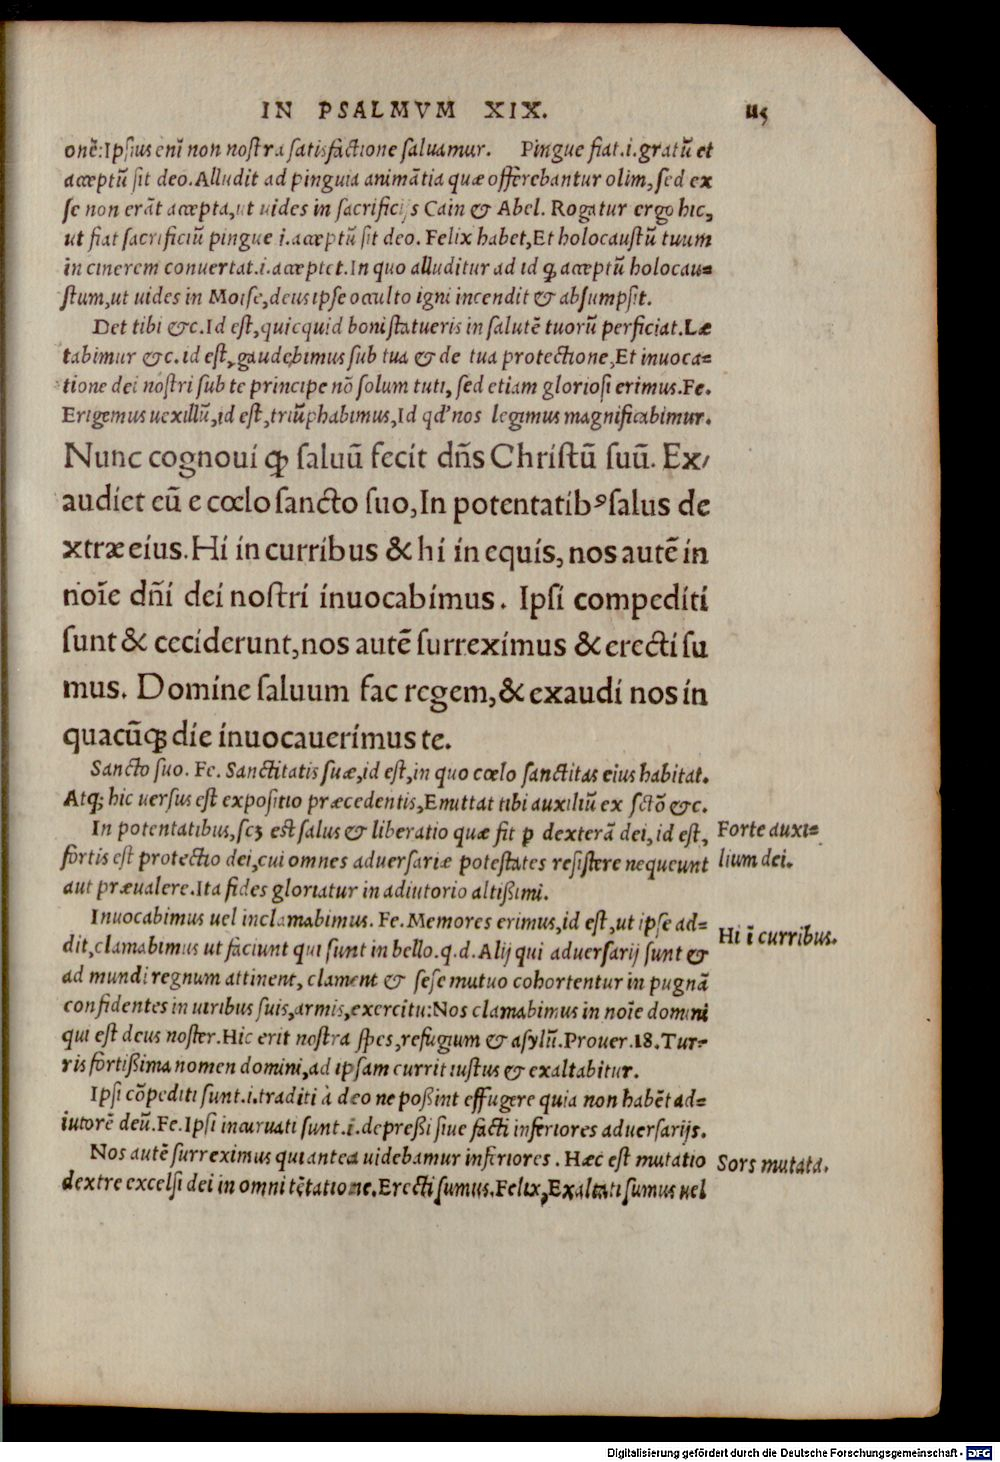 IN PSALMVM XIX. 115
onē:Ipsius enī non nostra satisfactione saluamur. Pingue fiat.i.gratū et
acceptū sit deo.Alludit ad pinguia animātia quæ offerebantur olim, sed ex
se non erāt accepta,ut uides in sacrificijs Cain & Abel. Rogatur ergo hic,
ut fiat sacrificiū pingue i.acceptū sit deo. Felix habet,Et holocaustū tuum
in cinerem conuertat.i.acceptet.In quo alluditur ad id ꝙ acceptū holocau=
stum,ut uides in Moise,deus ipse occulto igni incendit & absumpsit.
Det tibi &c.Id est,quicquid boni statueris in salutē tuorū perficiat.Læ
tabimur &c. id est, gaudebimus sub tua & de tua protectione,Et inuoca=
tione dei nostri sub te principe nō solum tuti, sed etiam gloriosi erimus.Fe.
Erigemus uexillū,id est,triūphabimus,Id qd' nos legimus magnificabimur.
Nunc cognoui ꝙ saluū fecit dñs Christū suū. Ex/
audiet eū e cœlo sancto suo,In potentatibꝰ salus de
xtræ eius.Hi in curribus & hi in equis, nos autē in
noīe dñi dei nostri inuocabimus. Ipsi compediti
sunt & ceciderunt,nos autē surreximus & erecti su
mus. Domine saluum fac regem,& exaudi nos in
quacūꝙ die inuocauerimus te.
Sancto suo. Fe. Sanctitatis suæ,id est,in quo cœlo sanctitas eius habitat.
Atq; hic uersus est expositio præcedentis,Emittat tibi auxiliū ex sctō &c.
In potentatibus,scꝫ est salus & liberatio quæ fit ꝑ dexterā dei,id est,
Forte auxi=
fortis est protectio dei,cui omnes aduersariæ potestates resistere nequeunt
lium dei.
aut præualere.Ita fides gloriatur in adiutorio altißimi.
Inuocabimus uel inclamabimus. Fe.Memores erimus,id est,ut ipse ad=
Hi ī curribus.
dit,clamabimus ut faciunt qui sunt in bello.q.d.Alij qui aduersarij sunt &
ad mundi regnum attinent, clament & sese mutuo cohortentur in pugnā
confidentes in uiribus suis,armis,exercitu:Nos clamabimus in noīe domini
qui est deus noster.Hic erit nostra spes,refugium & asylū.Prouer.18.Tur=
ris fortißima nomen domini,ad ipsam currit iustus & exaltabitur.
Ipsi cōpediti sunt.i.traditi à deo ne poßint effugere quia non habēt ad=
iutorē deū.Fe.Ipsi incuruati sunt.i.depreßi siue facti inferiores aduersarijs.
Nos autē surreximus qui antea uidebamur inferiores . Hæc est mutatio
Sors mutata.
dextre excelsi dei in omni tētatione.Erecti sumus.Felix,Exaltati sumus uel
Digitalisierung gefördert durch die Deutsche Forschungsgemeinschaft - DFG